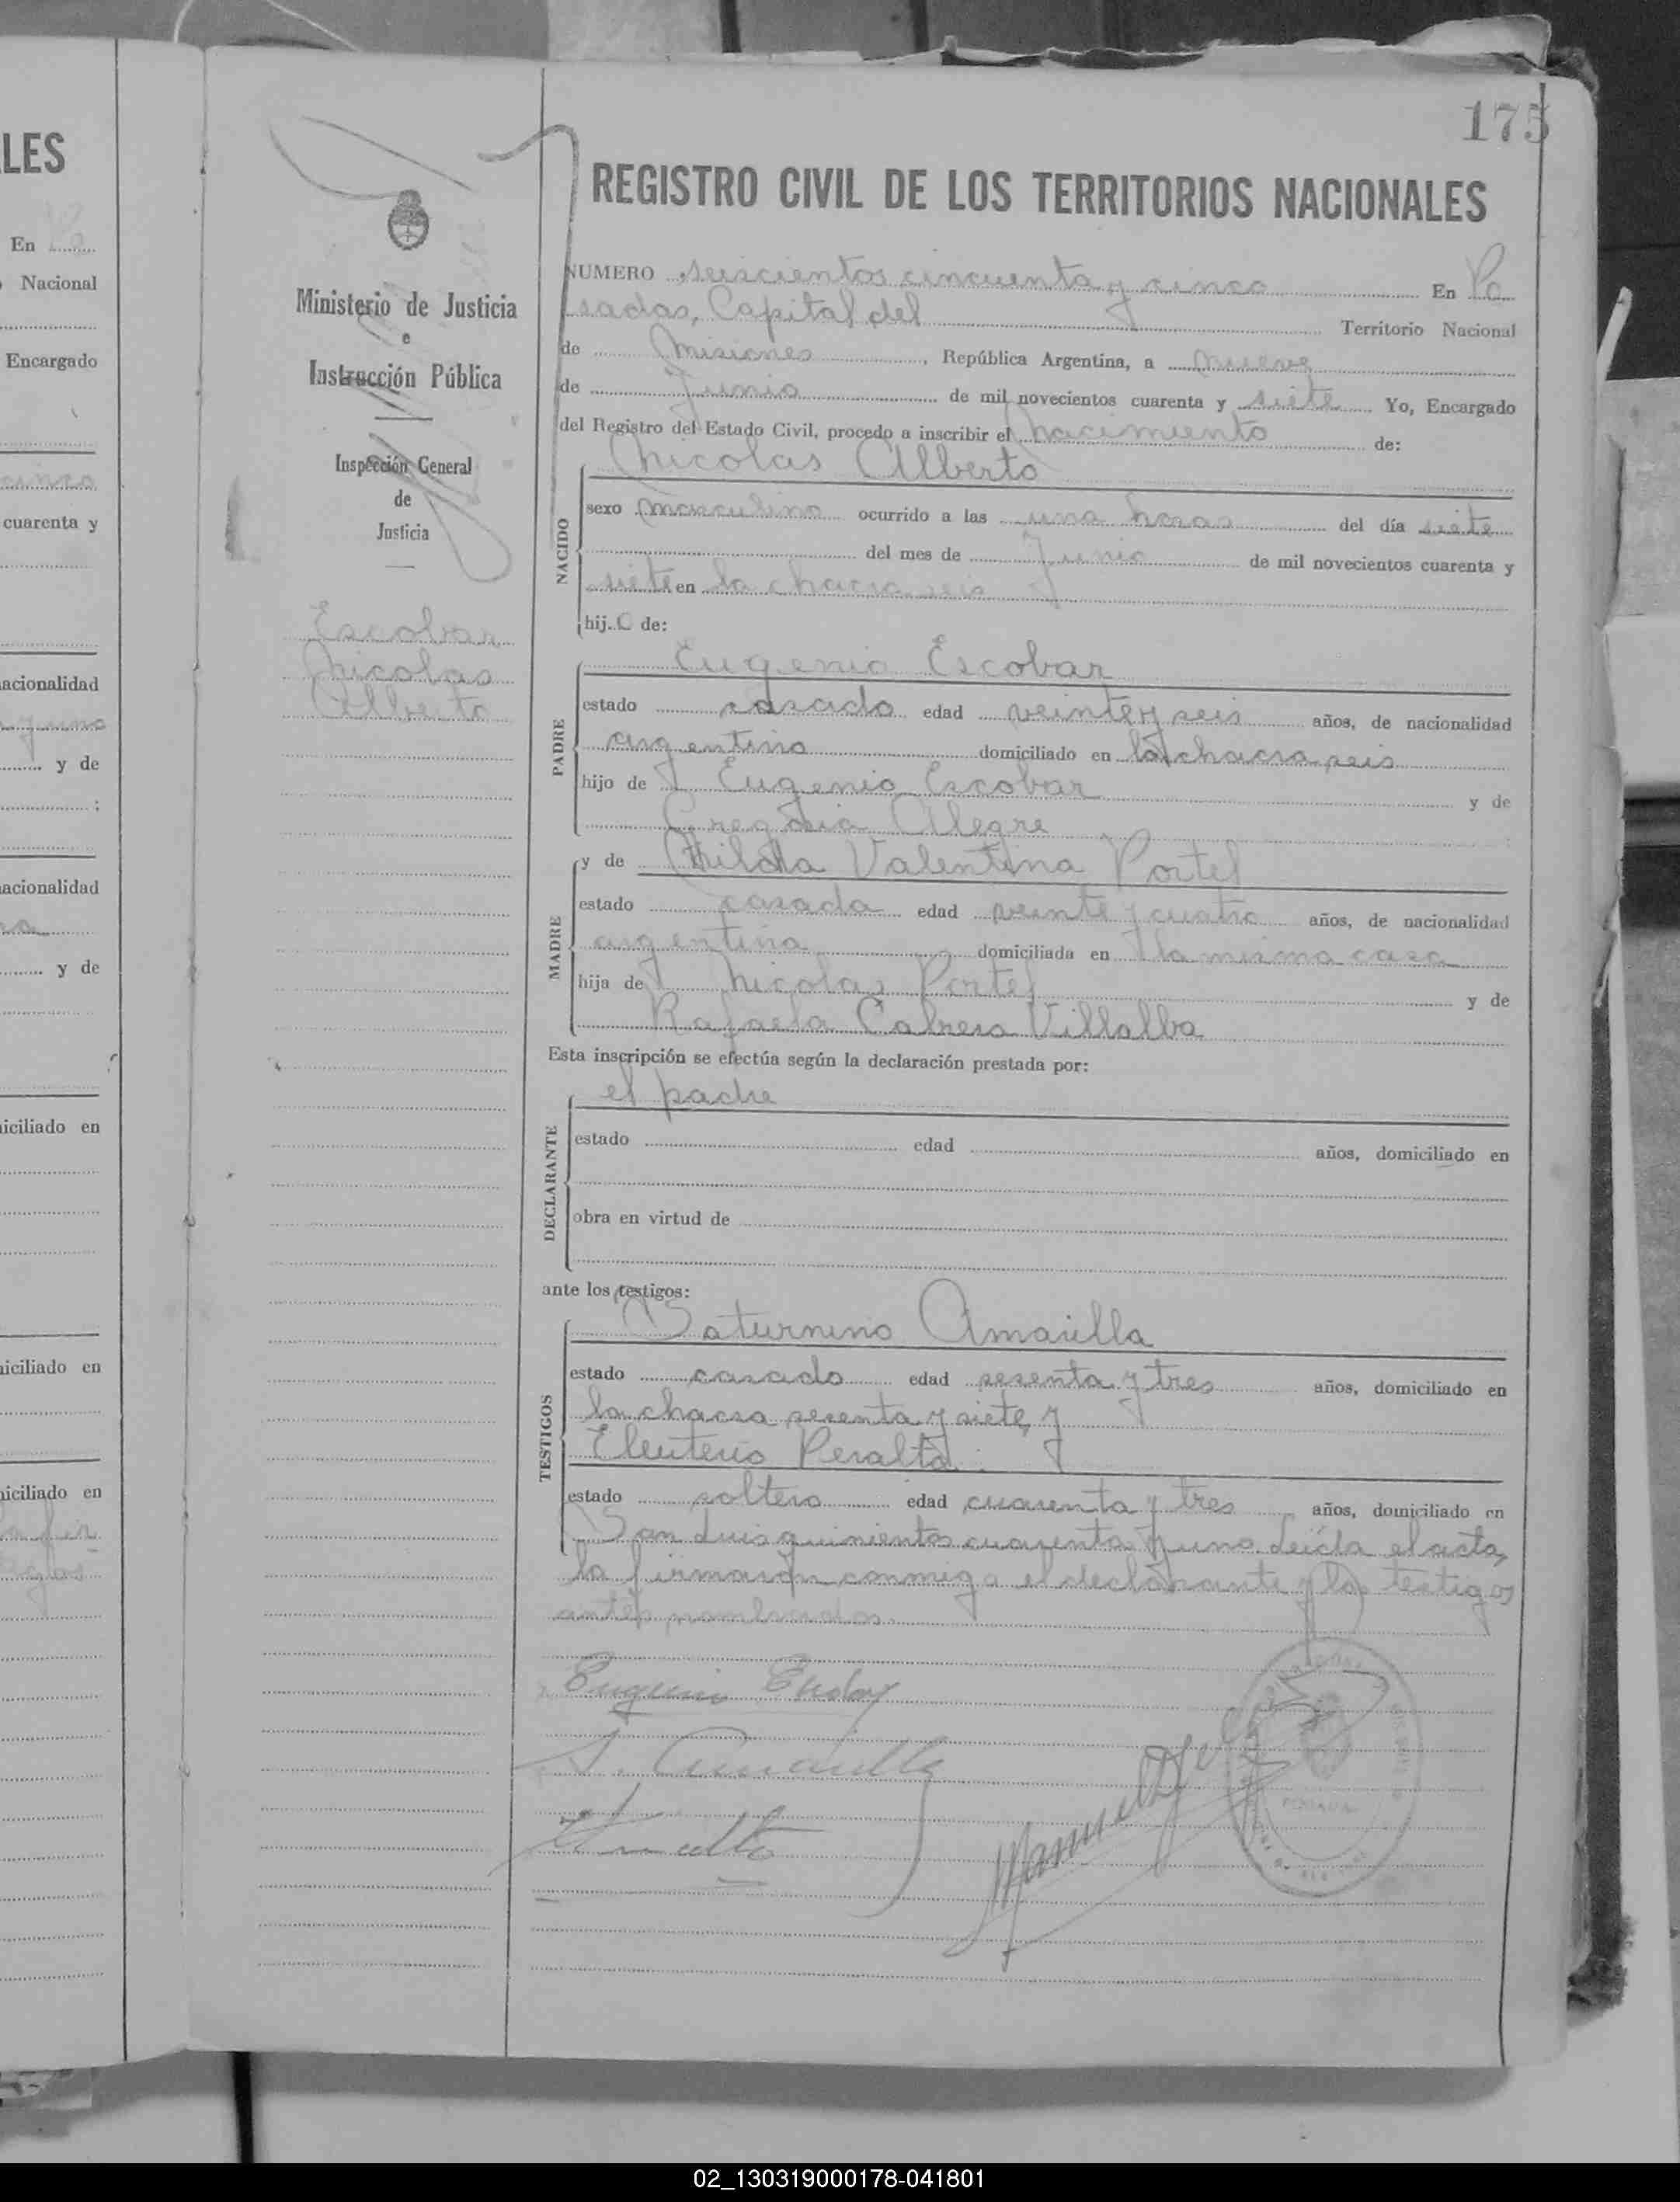 175
LES
REGISTRO CIVIL DE LOS TERRITORIOS NACIONALES
En
Nacional
Encargado
cinco
cuarenta y
acionalidad
y de
;
acionalidad
y de
iciliado en
iciliado en
iciliado en
Ministerio de Justicia
e
Instrucción Pública
Inspección General
de
Justicia
Escobar
Nicolas
Alberto
NUMERO seiscientos cincuenta y cinco En Po
sadas, Capital del Territorio Nacional
de Misiones, República Argentina, a nueve
de Junio de mil novecientos cuarenta y siete Yo, Encargado
del Registro del Estado Civil, procedo a inscribir el nacimiento de:
NACIDO
Nicolas Alberto
sexo masculino ocurrido a las una horas del día siete
del mes de Junio de mil novecientos cuarenta y
siete en la chacra seis
hijo de:
PADRE
Eugenio Escobar
estado casado edad veinte y seis años, de nacionalidad
argentina domiciliado en la chacra seis
hijo de Eugenio Escobar y de
Gregoria Alegre
MADRE
y de Hilda Valentina Portel
estado casada edad veinte y cuatro años, de nacionalidad
argentina domiciliada en la misma casa
hija de Nicolas Portel y de
Rafaela Cabrera Villalba
Esta inscripción se efectúa según la declaración prestada por:
DECLARANTE
el padre
estado edad años, domiciliado en
obra en virtud de
ante los testigos:
TESTIGOS
Saturnino Amarilla
estado casado edad sesenta y tres años, domiciliado en
la chacra sesenta y siete, y
Eleuterio Peralta
estado soltero edad cuarenta y tres años, domiciliado en
San Luis quinientos cuarenta y uno. Leída el acta,
la firmaron conmigo el declarante y los testigos
antes nombrados.
Eugenio Escobar
S. Amarilla
02_130319000178-041801